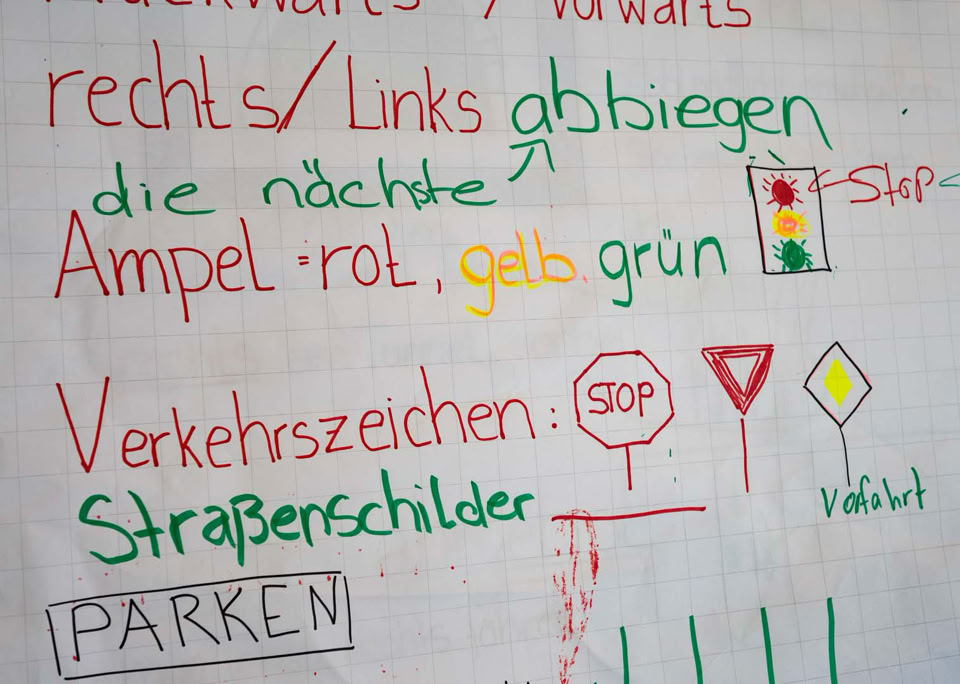 rückwärts / vorwärts
rechts/Links abbiegen
die nächste
Stop
Ampel = rot, gelb. grün
Verkehrszeichen: STOP
Vorfahrt
Straßenschilder
PARKEN